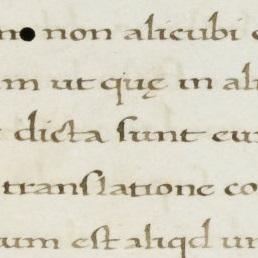 non alicubi
um ut quę in ali
dicta sunt eu
translatione co
um est aliqd un